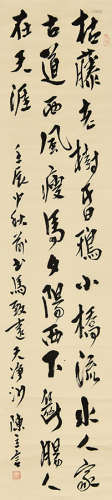 枯藤老樹昏鴉小橋流水人家
古道西風瘦馬夕陽西下斷腸人
在天涯
壬辰少秋 書馬致遠天淨沙 陳